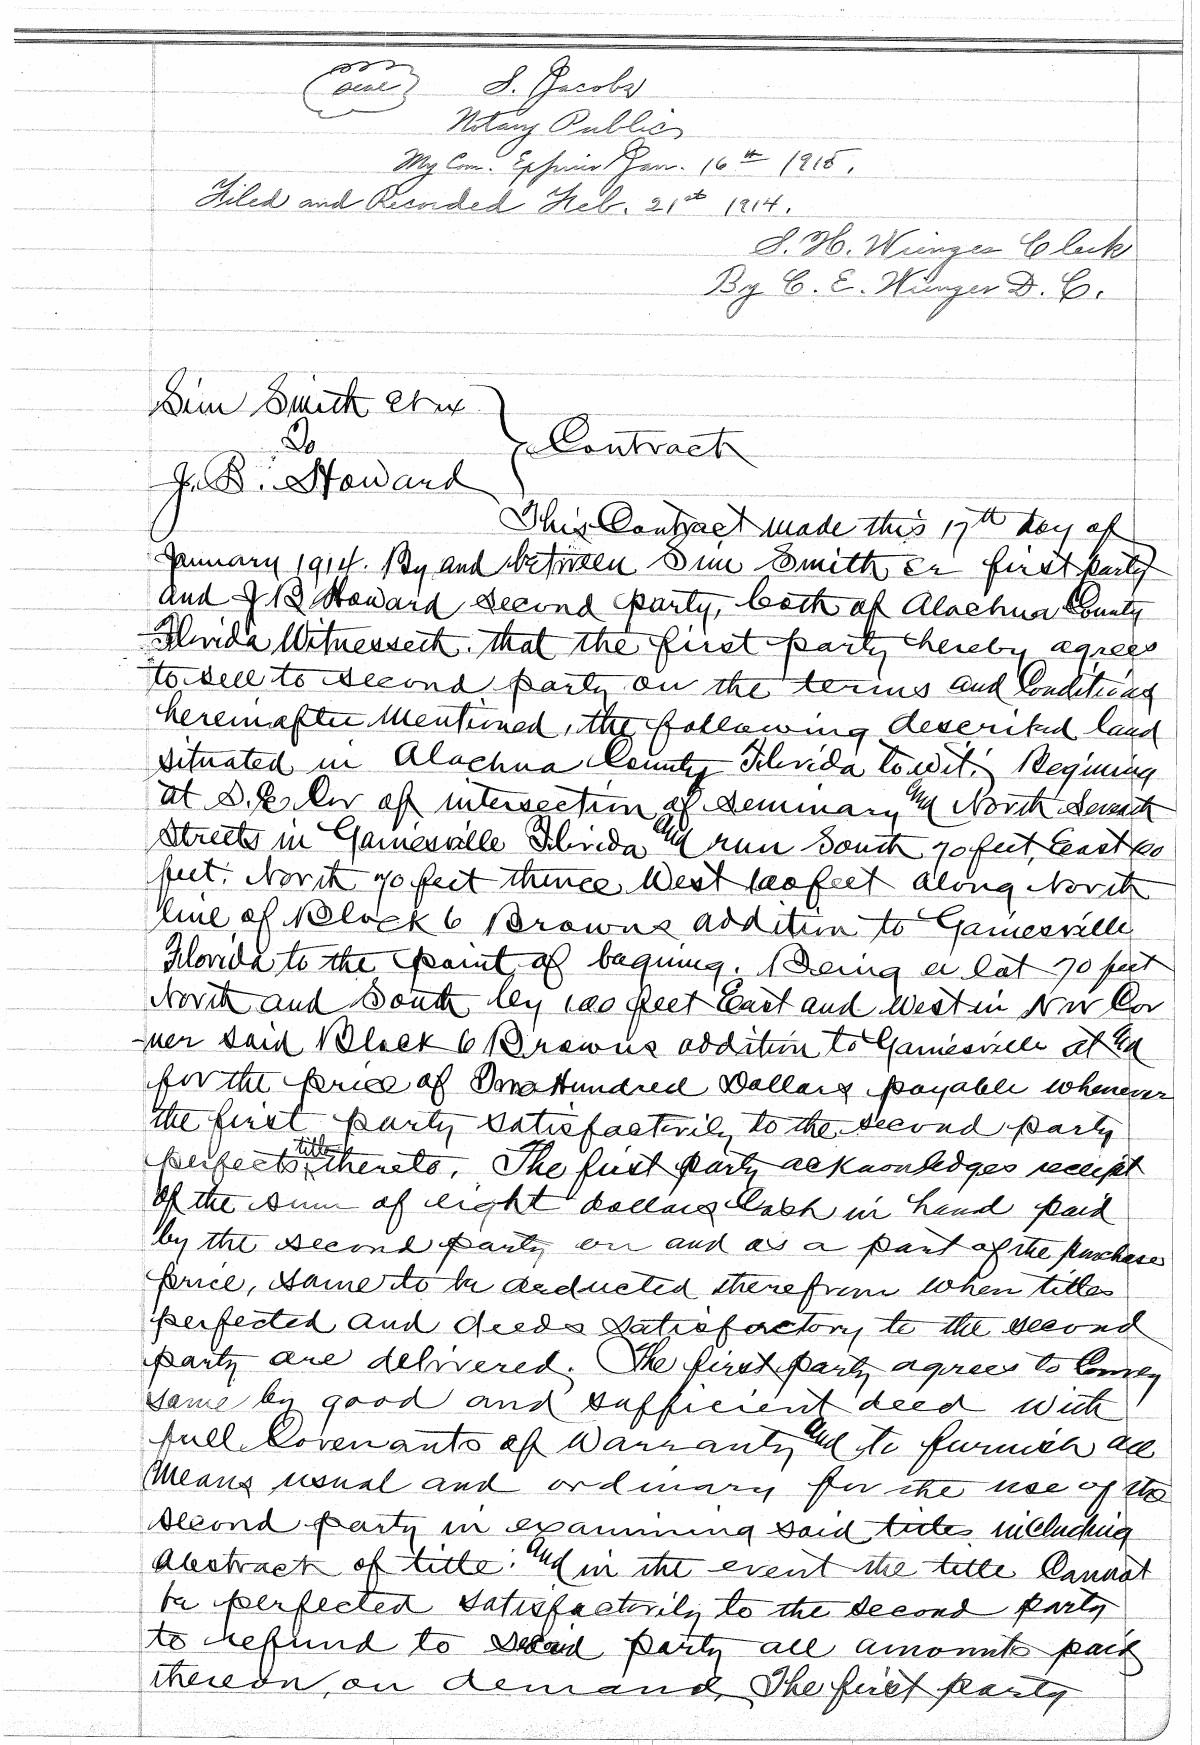 seal S. Jacobs
Notary Public
My Com. Expires Jan. 16th 1915.
Filed and Recorded Feb. 21st 1914.
S. H. Wienges Clerk
By C. E. Wienges D. C.
Sim Smith et ux
To
J. B. Howard
Contract
This Contract made this 17th day of
January 1914. By and between Sim Smith Sr first party
and J B Howard second party, both of Alachua County
Florida Witnesseth. that the first party hereby agrees
to sell to second party on the terms and Conditions
hereinafter Mentioned, the following described land
situated in Alachua County Florida to wit; Begining
at S.E. Cor of intersection of Seminary and North Seventh
Streets in Gainesville Florida and run South 70 feet, East 100
feet. North 70 feet thence West 100 feet along North
line of Block 6 Browns addition to Gainesville
Florida to the point of begining. Being a lot 70 feet
North and South by 100 feet East and West in N W Cor
-ner said Block 6 Browns addition to Gainesville at and
for the price of One Hundred Dollars payable whenever
the first party satisfactorily to the second party
perfects title thereto. The first party acknowledges receipt
of the sum of eight dollars Cash in hand paid
by the second party on and as a part of the purchase
price, same to be deducted therefrom when titles
perfected and deeds satisfactory to the second
party are delivered. The first party agrees to Convey
same by good and sufficient deed with
full Covenants of Warranty and to furnish all
Means usual and ordinary for the use of the
second party in examining said titles including
Abstract of title: and in the event the title Cannot
be perfected satisfactorily to the second party
to refund to said party all amounts paid
thereon, on demand, The first party